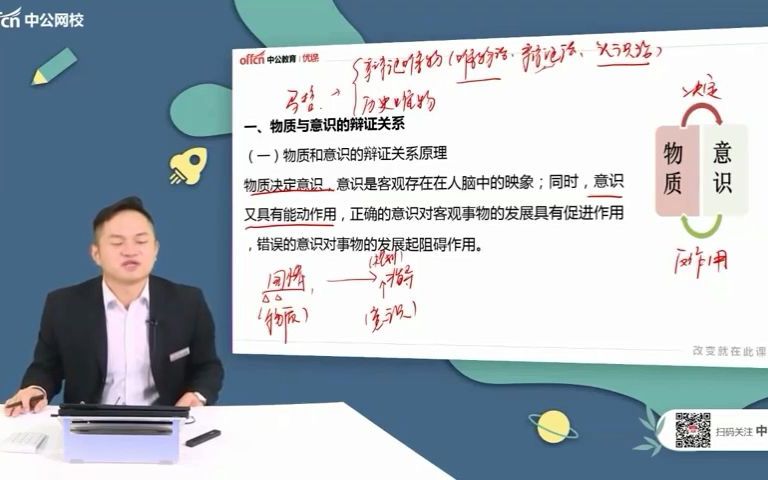 offcn 中公网校
offcn 中公教育 | 优课
辩证唯物(唯物论、辩证法、认识论)
马哲 →
历史唯物
一、物质与意识的辩证关系
(一)物质和意识的辩证关系原理
物质决定意识,意识是客观存在在人脑中的映象;同时,意识
又具有能动作用,正确的意识对客观事物的发展具有促进作用
,错误的意识对事物的发展起阻碍作用。
国情
(规划)
指导
(物质)
(意识)
决定
物质
意识
反作用
改变就在此课
扫码关注 中